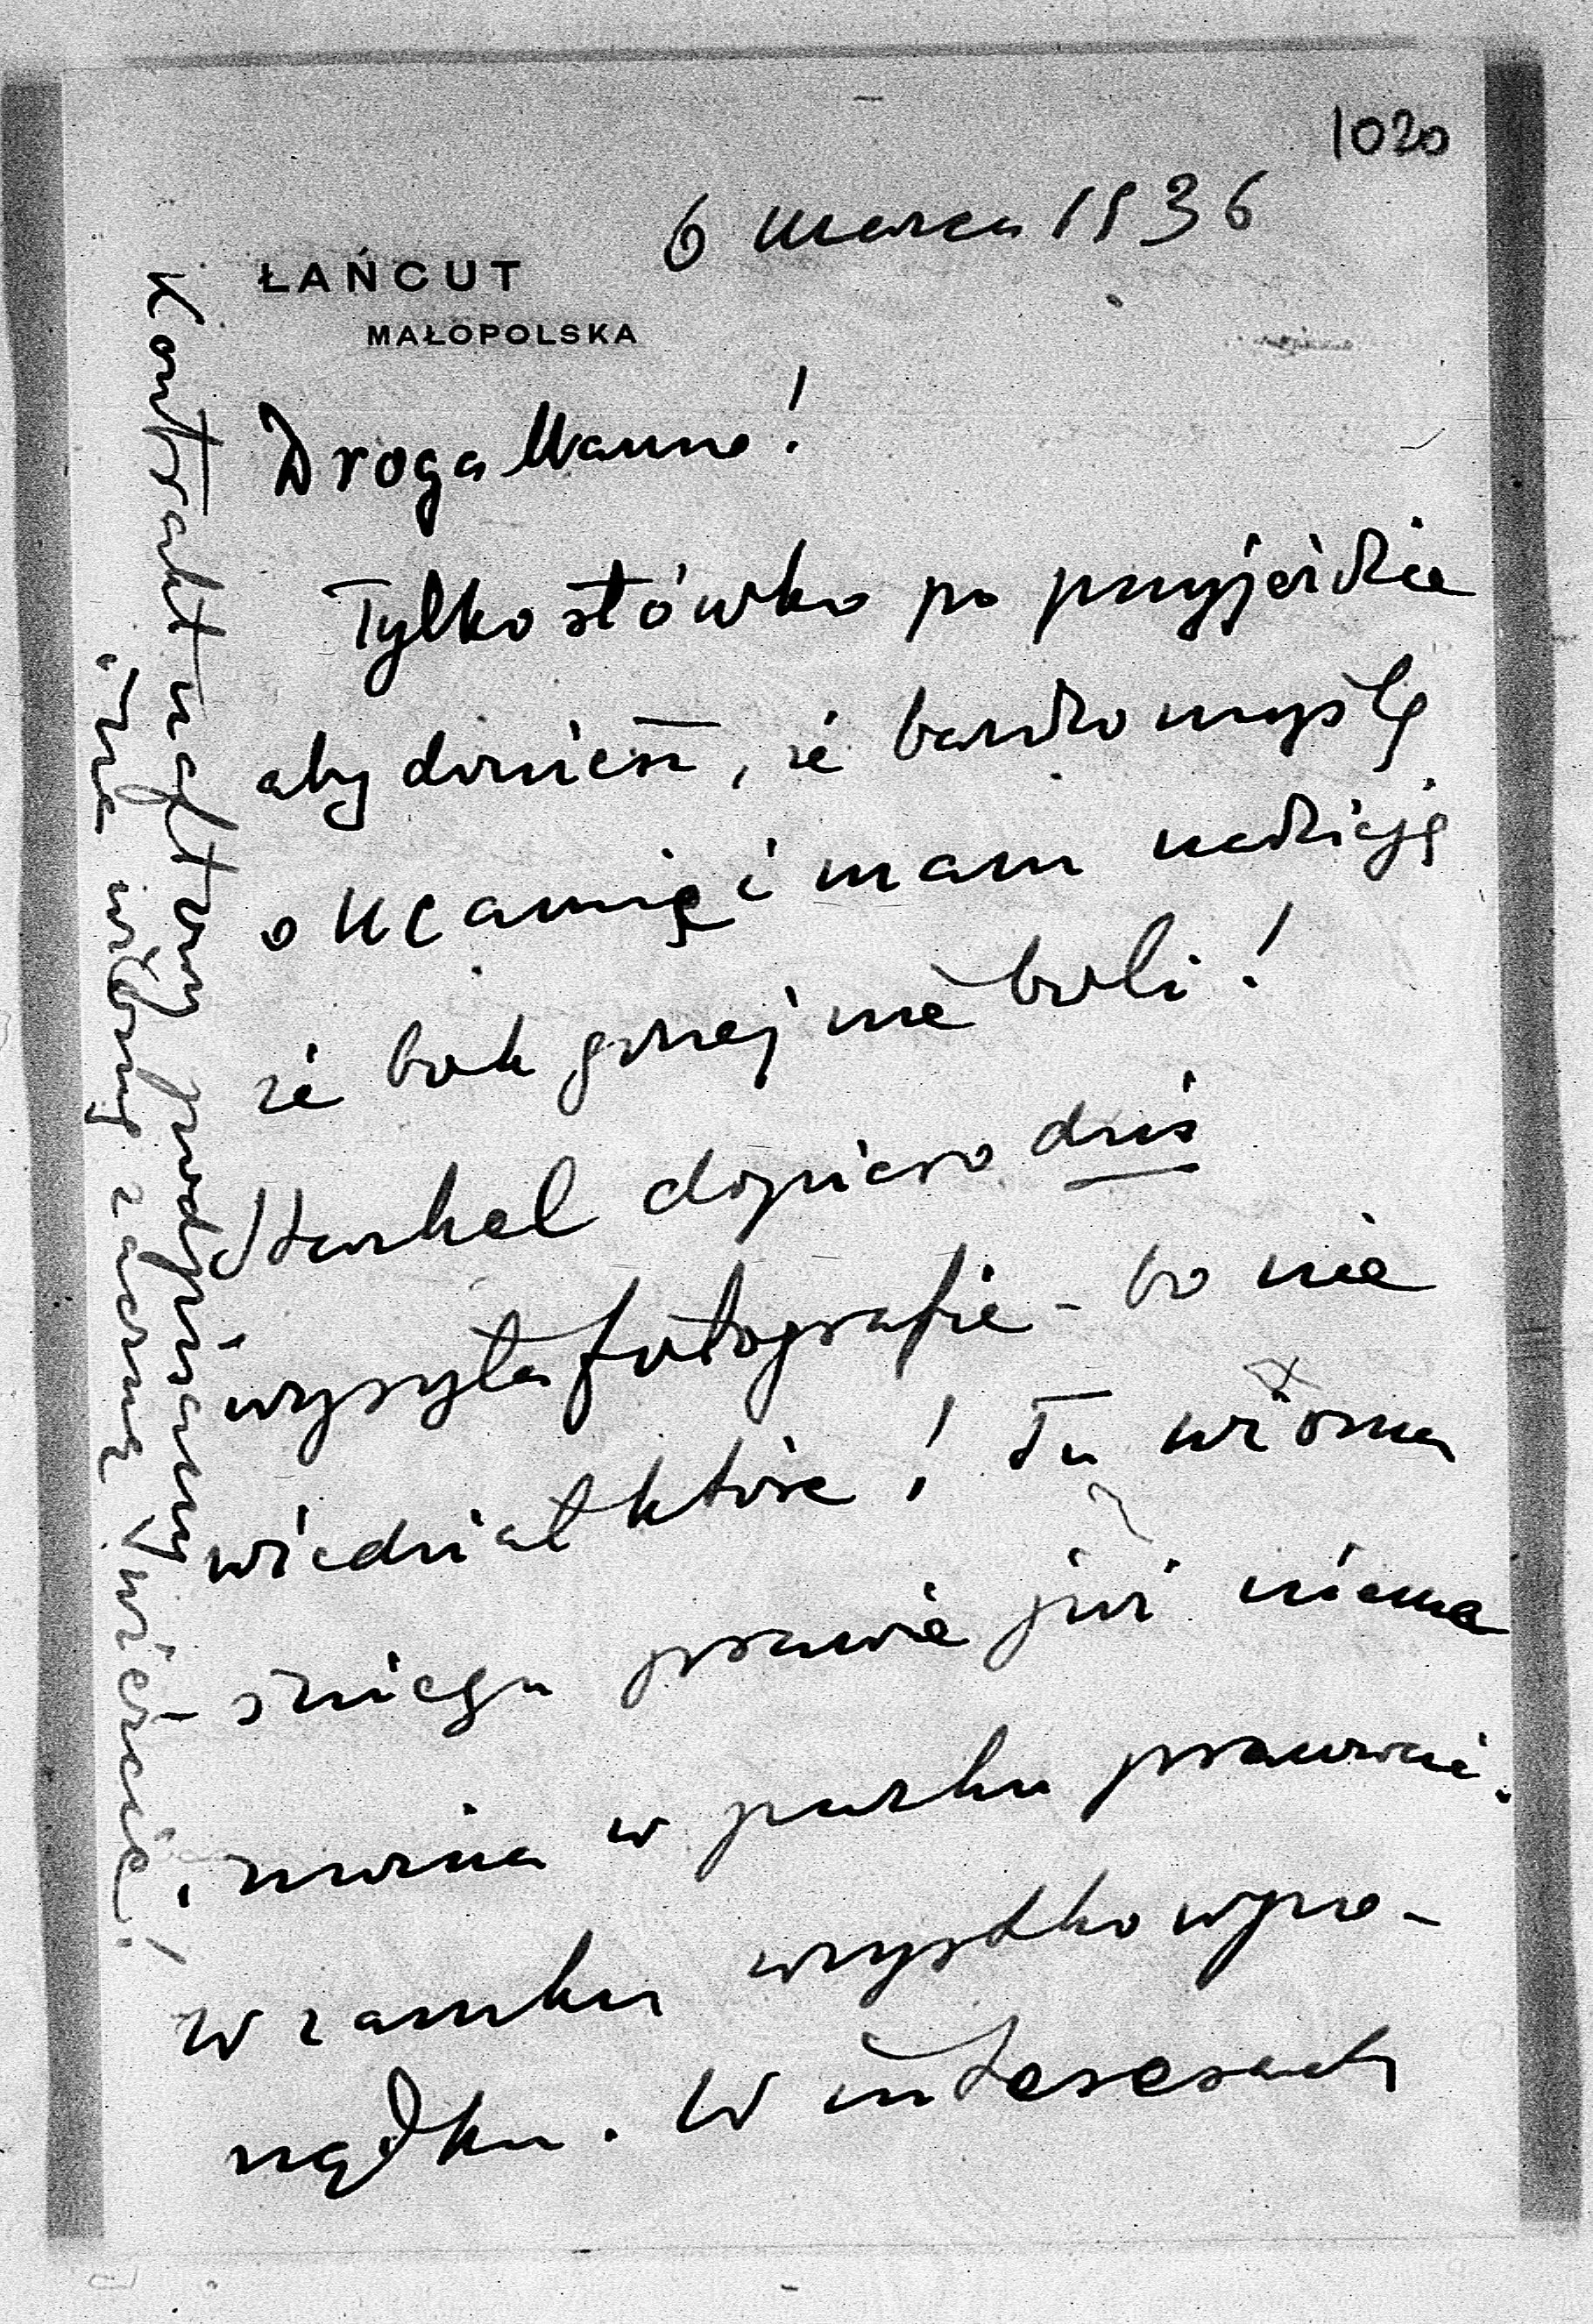 1020
6 marca 1936
ŁAŃCUT
MAŁOPOLSKA
Droga Mamo!
Tylko słówko po przyjeździe
aby donieść, że bardzo myślę
o Mamię i mam nadzieję
że bok gorzej nie boli!
dopiero dziś
wysyła fotografie - bo nie
wiedział które! Tu wiosna
śniegu prawie już niema
i można w parku pracować.
W zamku wszystko w porzą-
rządku. W interesach
Kontrakt naftowy podpisany
i zacznę wiercić!